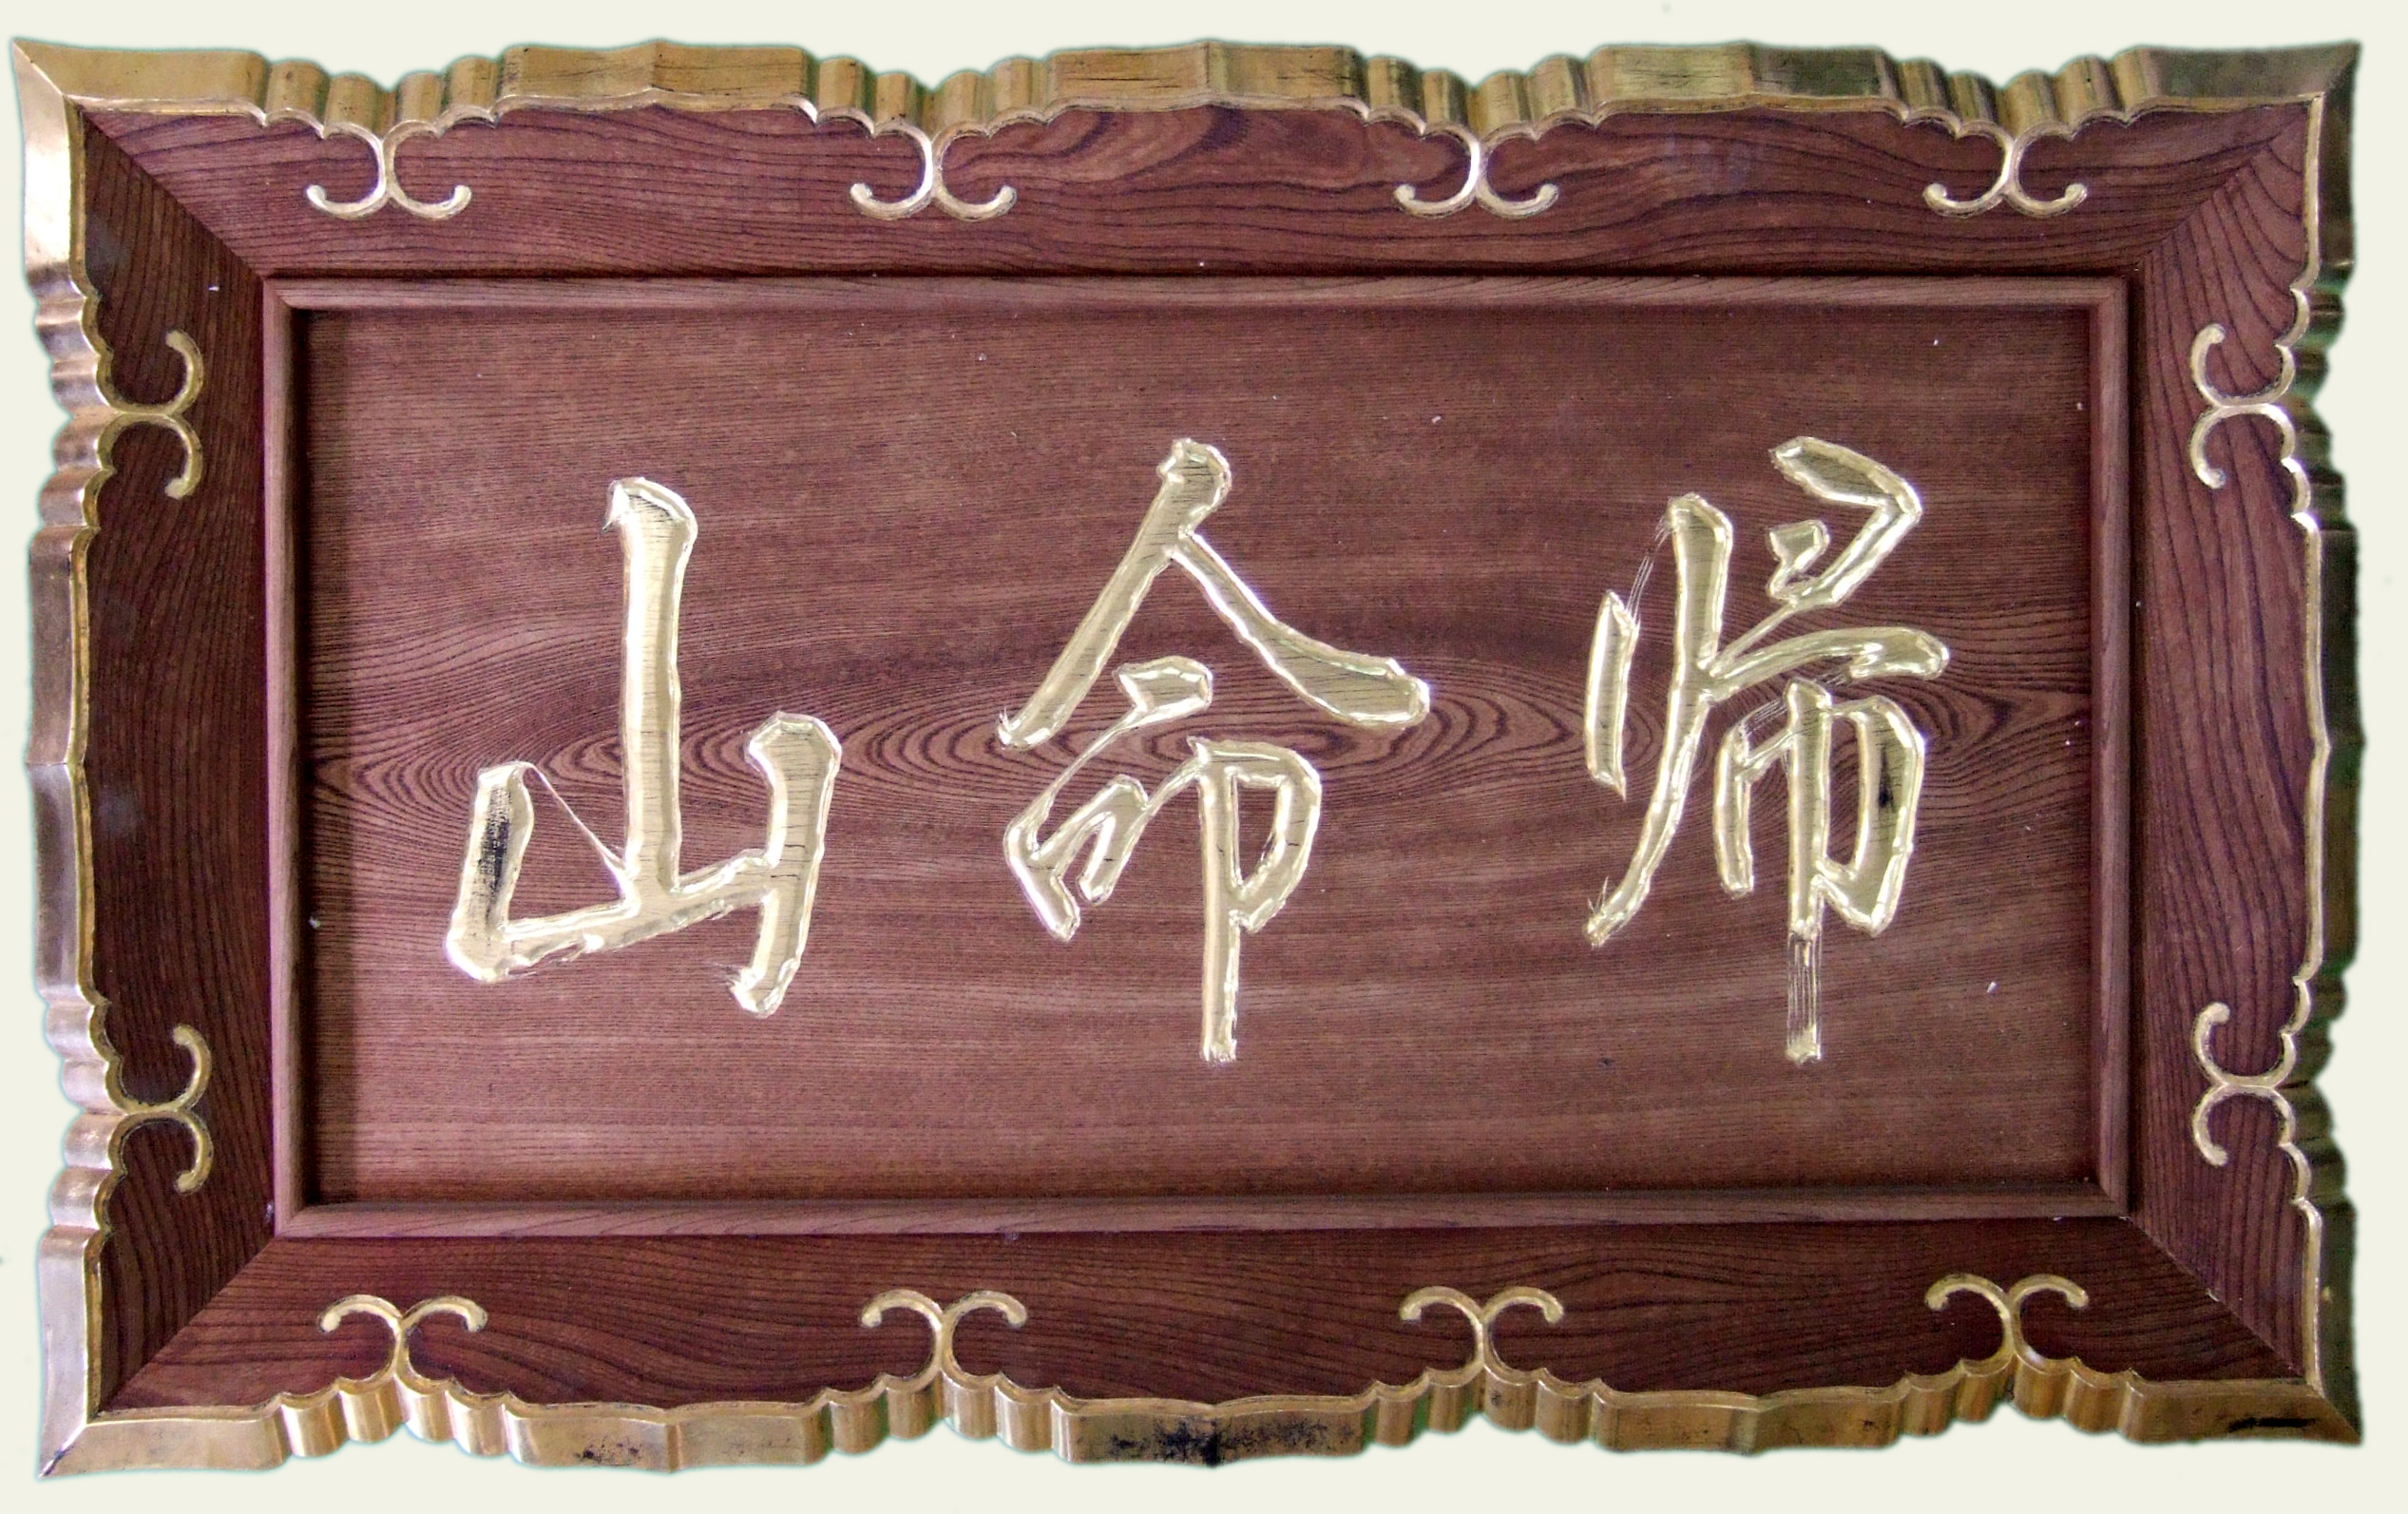 帰命山